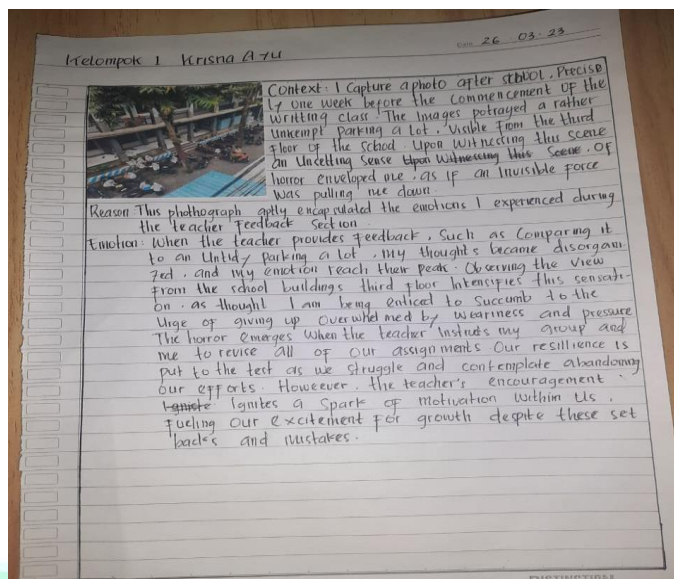 Date 26 03 · 23
Kelompok 1 Krisna A7U
Context : I Capture a photo after school . Precise
ly one week before the Commencement OF the
writting class . The Images potrayed a rather
unkempt parking a lot , visible from the third
floor of the school . Upon witnessing this scene
an Uncetting sense Upon Witnessing this Scene . OF
horror enveloped me , as if an Invisible force
was pulling me down .
Reason : This phothograph aptly encapsulated the emotions I experienced during
the teacher Feedback Section .
Emotion : When the teacher provides Feedback , Such as Comparing it
to an Untidy parking a lot , my thoughts became disorgani
zed , and my emotion reach their peak . Observing the view
from the school buildings third floor Intensifies this sensati-
on . as thought I am being enticed to Succumb to the
Urge of giving up overwhelmed by weariness and pressure
The horror emerges when the teacher Instructs my group and
me to revise all of our assignments Our resillience is
put to the test as we struggle and contemplate abandoning
our efforts . Howeever , the teacher's encouragement
Ignicte Ignites a Spark of motivation within Us ,
Fueling our excitement for growth despite these set
backs and mistakes .
DISTINCTION